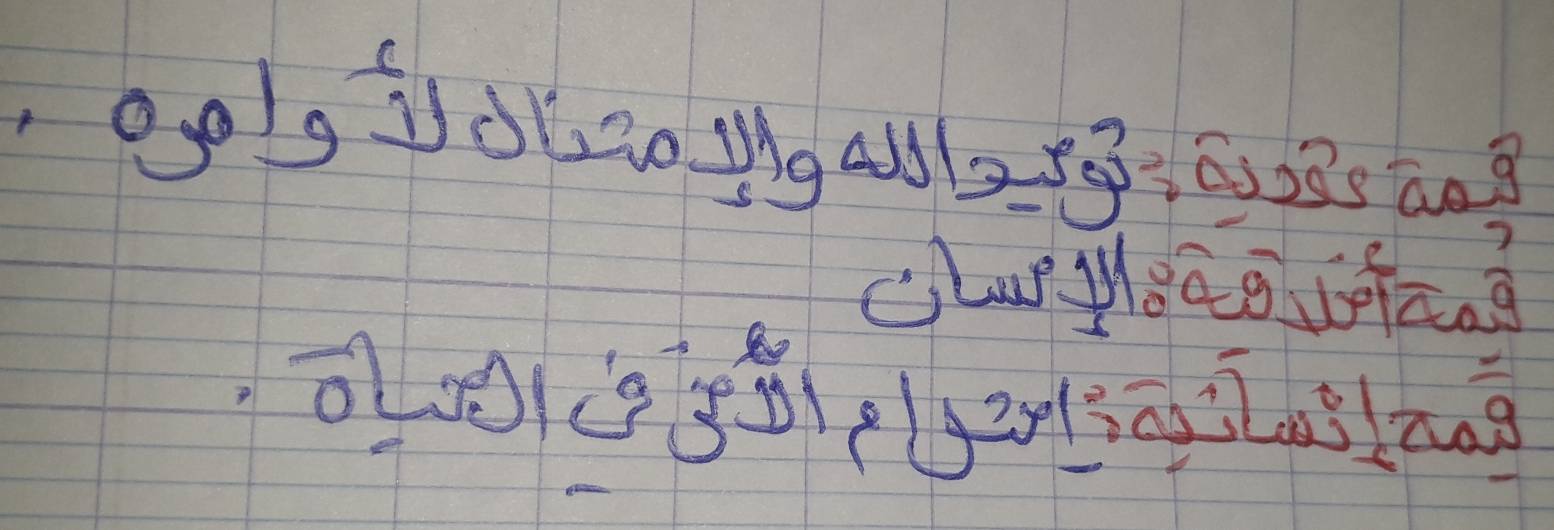 قيمة عقدية: توحيد الله والإمتثال لأوامره.
قيمة أخلاقية: الإحسان
قيمة إنسانية: إحترام الأخر في الحياة.